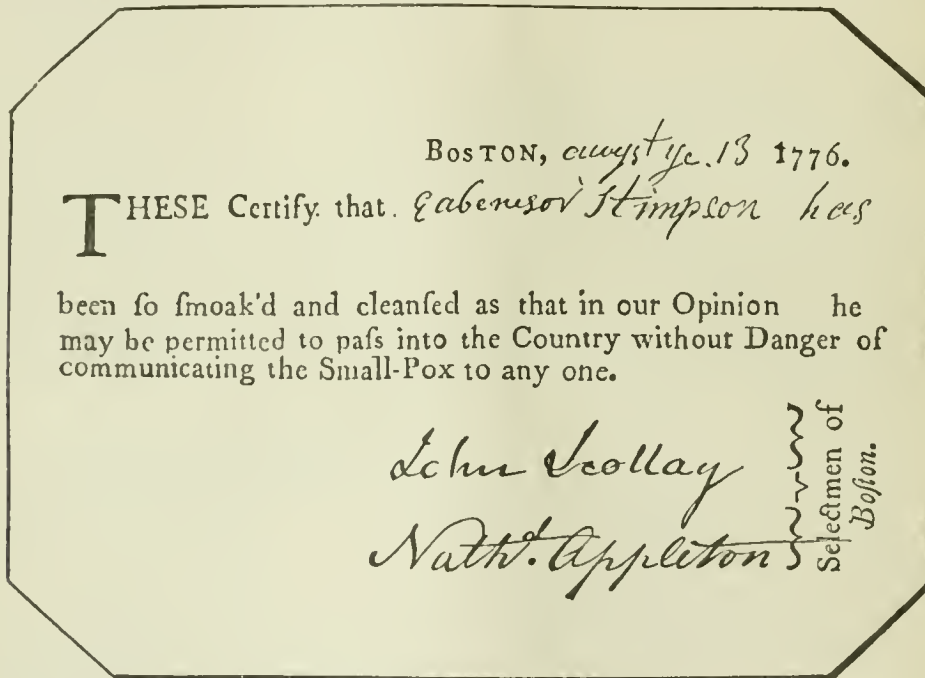 BOSTON, augst ye. 13 1776.
THESE Certify that. Eabenesor Stimpson has
been ſo ſmoak'd and cleanſed as that in our Opinion he
may be permitted to paſs into the Country without Danger of
communicating the Small-Pox to any one.
John Scollay
Nathl. Appleton
Selectmen of
Boſton.